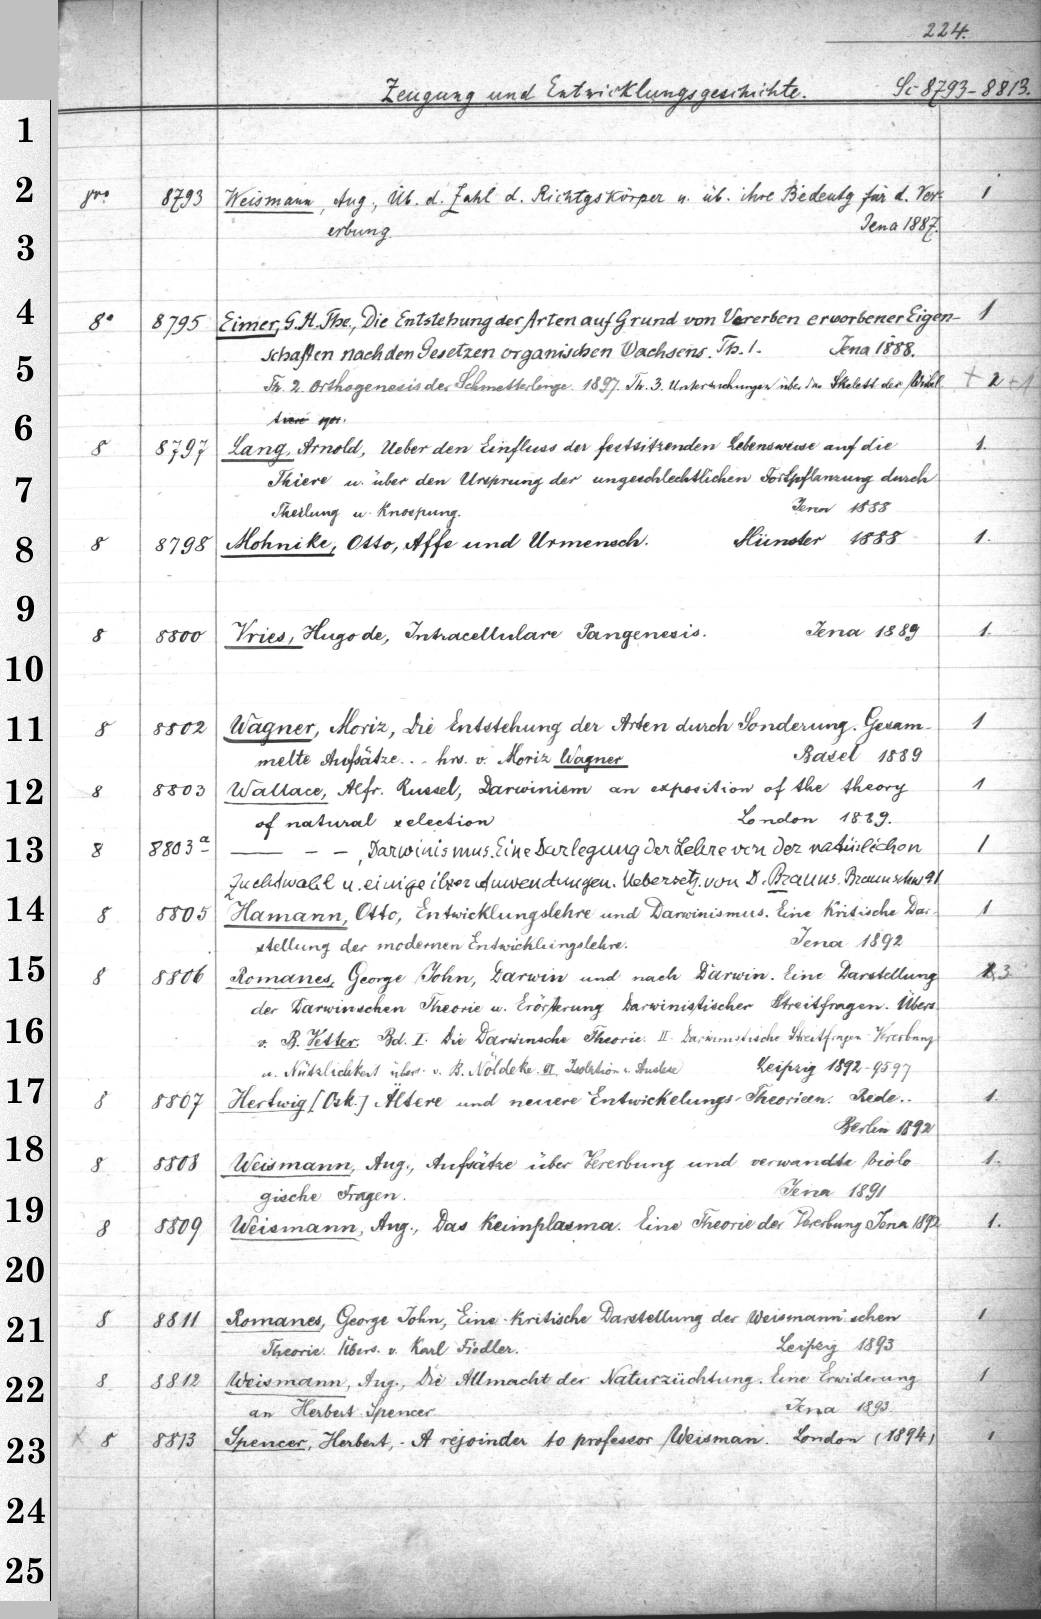 224.
Zeugung und Entwicklungsgeschichte. Sc 8793-8813.
1
2 8793 Weismann, Aug., Üb. d. Zahl d. Richtgskörper u. üb. ihre Bedeutg für d. Ver- 1
erbung. Jena 1887.
3
4 8° 8795 Eimer, G.H.The., Die Entstehung der Arten auf Grund von Vererben erworbener Eigen- 1
schaften nach den Gesetzen organischen Wachsens. Th. 1. Jena 1888.
5 Th. 2. Orthogenesis der Schmetterlinge. 1897. Th. 3. Untersuchungen über das Skelett der Wirbel + 2 + 1
6 tiere 1901.
8 8797 Lang, Arnold, Ueber den Einfluss der festsitzenden Lebensweise auf die 1.
7 Thiere u. über den Ursprung der ungeschlechtlichen Fortpflanzung durch
Theilung u. Knospung. Jena 1888
8 8 8798 Mohnike, Otto, Affe und Urmensch. Münster 1888 1.
9
8 8800 Vries, Hugo de, Intracellulare Pangenesis. Jena 1889 1.
10
11 8 8802 Wagner, Moriz, Die Entstehung der Arten durch Sonderung. Gesam- 1
melte Aufsätze... hrs. v. Moriz Wagner Basel 1889
12 8 8803 Wallace, Alfr. Russel, Darwinism an exposition of the theory 1
of natural selection London 1889.
13 8 8803a — – –, Darwinismus. Eine Darlegung der Lehre von der natürlichen 1
Zuchtwahl u. einige ihrer Anwendungen. Uebersetz. von D. Brauns. Braunschw 91
14 8 8805 Hamann, Otto, Entwicklungslehre und Darwinismus. Eine kritische Dar- 1
stellung der modernen Entwicklungslehre. Jena 1892
15 8 8806 Romanes, George John, Darwin und nach Darwin. Eine Darstellung 3
der Darwinschen Theorie u. Erörterung Darwinistischer Streitfragen. Übers
16 v. B. Vetter. Bd. I. Die Darwinsche Theorie. II. Darwinistische Streitfragen Vererbung
u. Nützlichkeit übers. v. B. Nöldeke. III. Isolation u. Auslese Leipzig 1892-9597
17 8 8807 Hertwig [Osk.] Ältere und neuere Entwickelungs-Theorieen. Rede.. 1.
Berlin 1892
18 8 8808 Weismann, Aug., Aufsätze über Vererbung und verwandte biolo 1.
gische Fragen. Jena 1891
19 8 8809 Weismann, Aug., Das Keimplasma. Eine Theorie der Vererbung Jena 1892 1.
20
21 8 8811 Romanes, George John, Eine kritische Darstellung der Weismann'schen 1
Theorie. Übers. v. Karl Fiedler. Leipzig 1893
22 8 8812 Weismann, Aug., Die Allmacht der Naturzüchtung. Eine Erwiderung 1
an Herbert Spencer Jena 1893
23 × 8 8813 Spencer, Herbert, - A rejoinder to professor Weisman. London (1894) 1
24
25